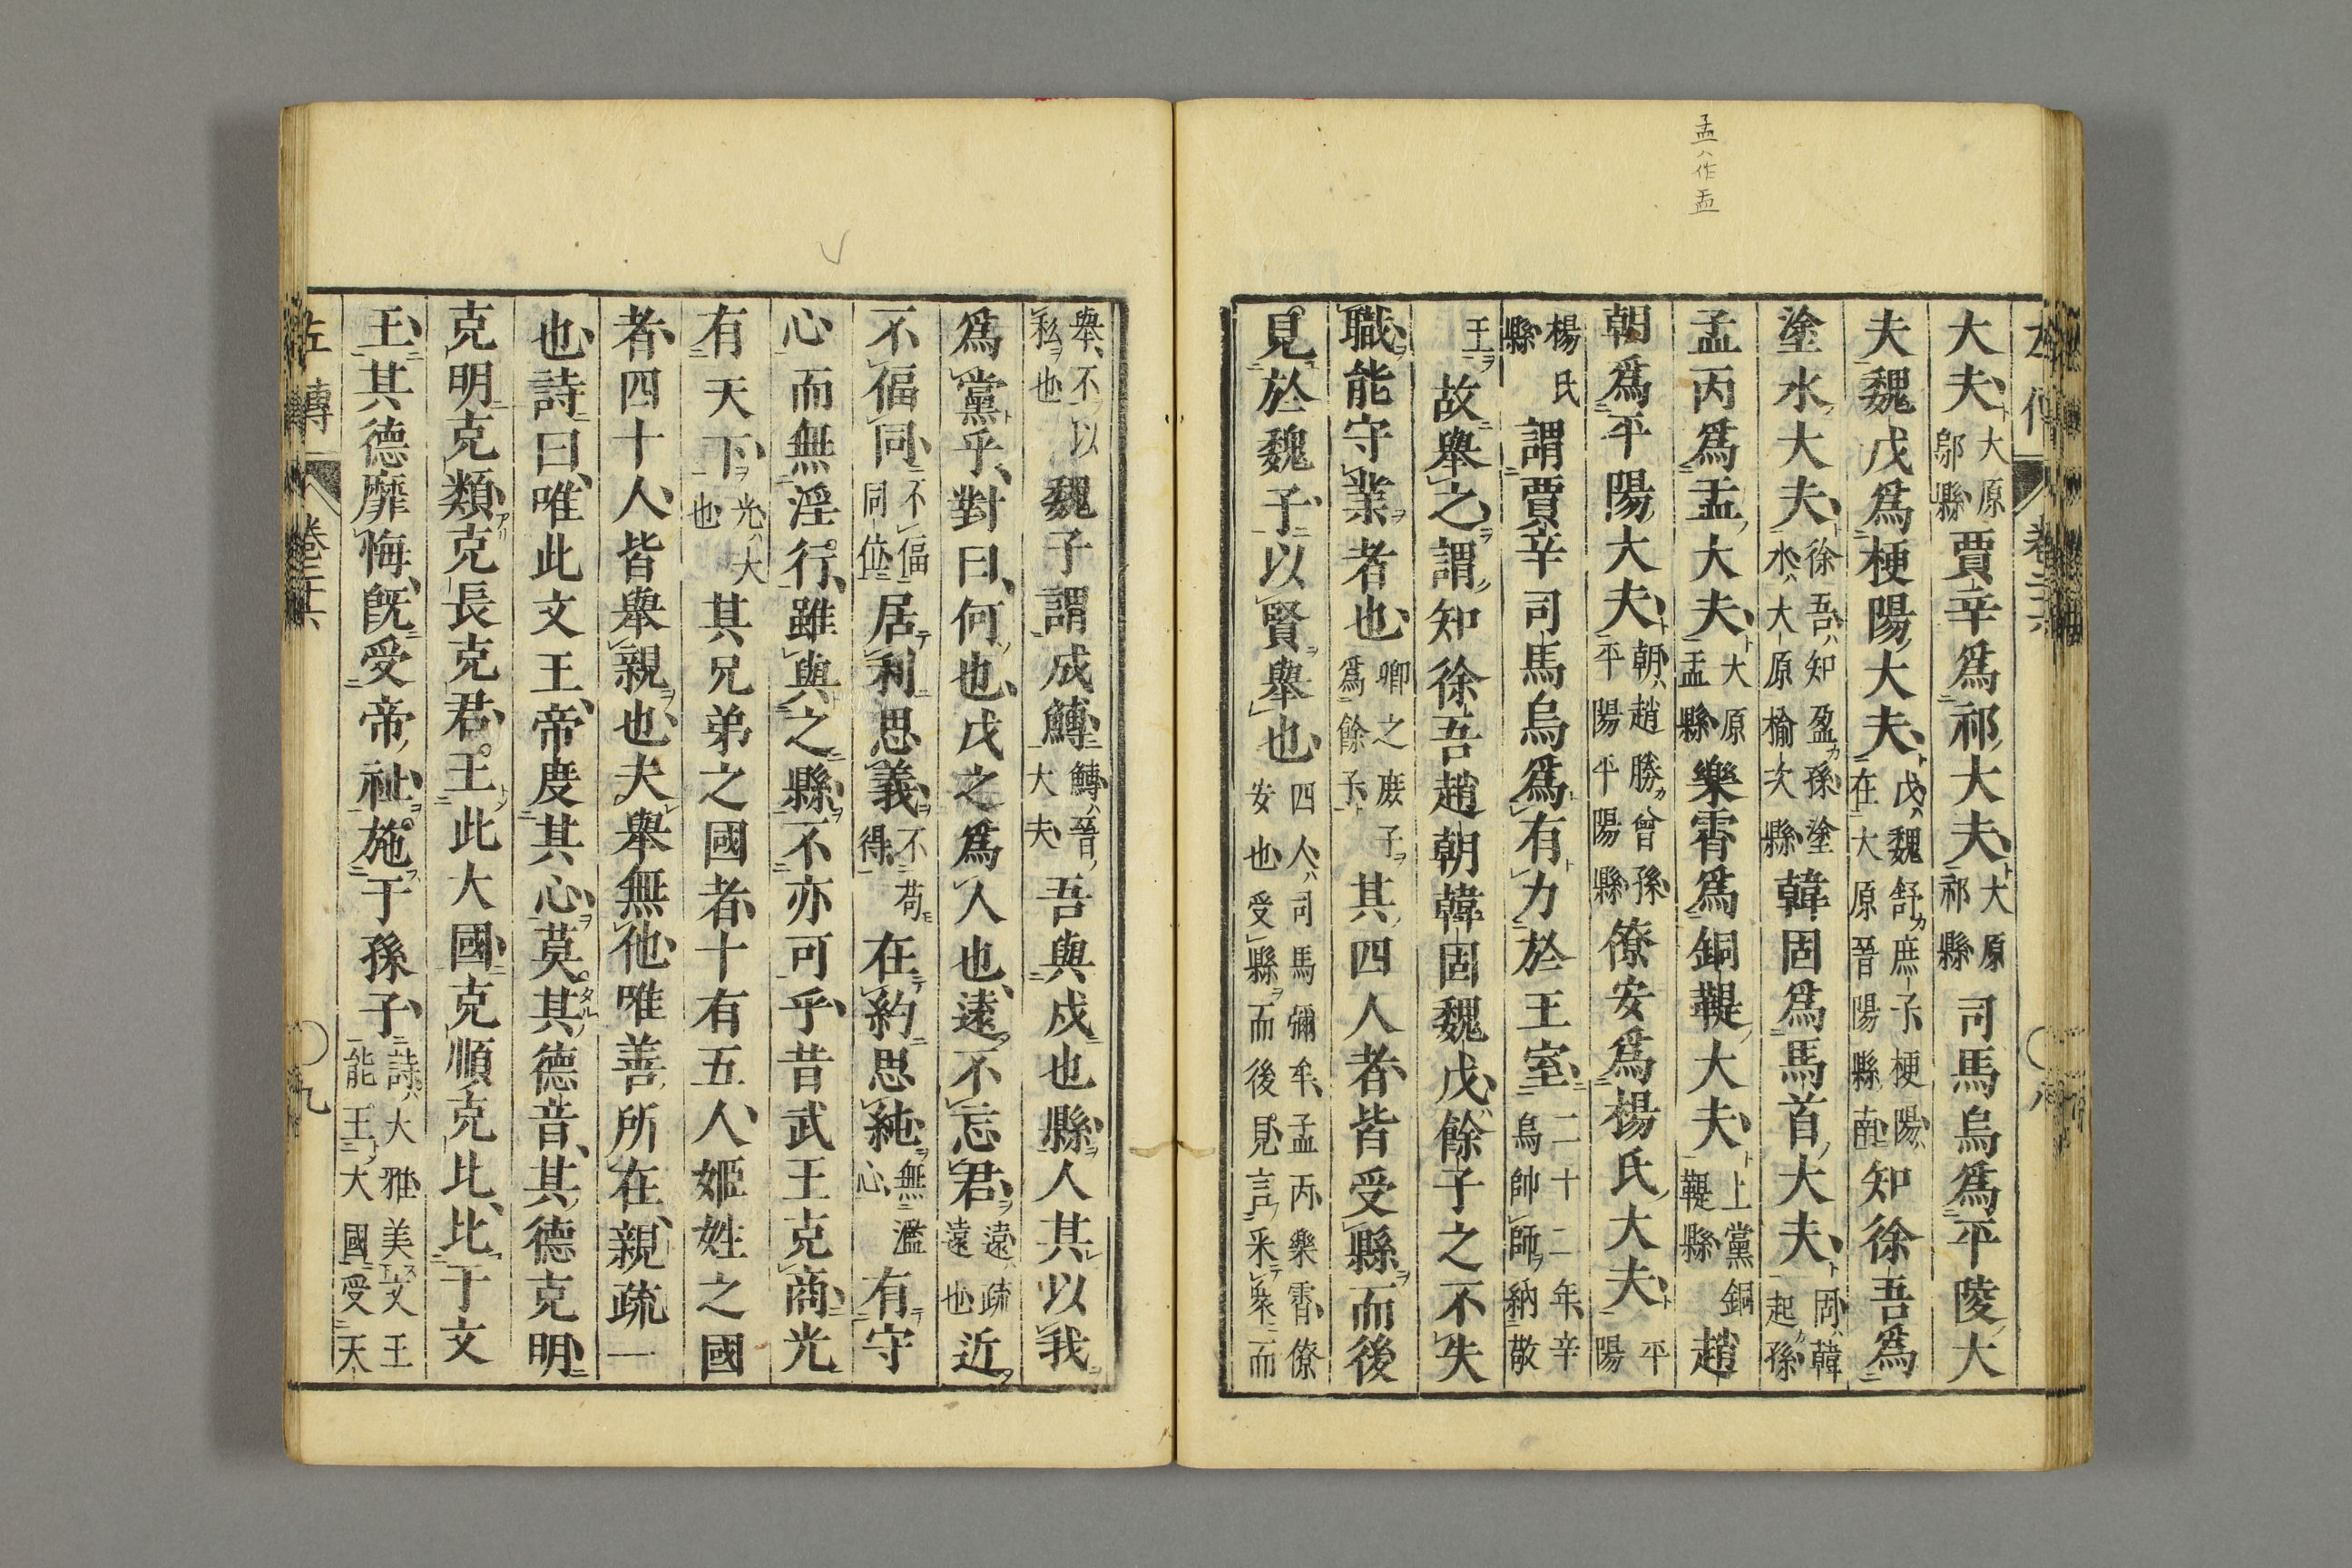 孟ハ作盂
左傳 卷二十六 ○八
大夫大原鄔縣賈辛爲祁大夫大原祁縣司馬烏爲平陵大
夫魏戊爲梗陽大夫戊魏舒庶子梗陽在大原晉陽縣南知徐吾爲
塗水大夫徐吾知盈孫塗水大原榆次縣韓固爲馬首大夫固韓起孫
孟丙爲盂大夫大原盂縣樂霄爲銅鞮大夫上黨銅鞮縣趙
朝爲平陽大夫朝趙勝曾孫平陽平陽縣僚安爲楊氏大夫平陽
楊氏縣謂賈辛司馬烏爲有力於王室二十二年辛烏帥師納敬
王故舉之謂知徐吾趙朝韓固魏戊餘子之不失
職能守業者也卿之庶子爲餘子其四人者皆受縣而後
見於魏子以賢舉也四人司馬彌牟孟丙樂霄僚安也受縣而後見言采衆而
舉不以私也魏子謂成鱄鱄晉大夫吾與戍也縣人其以我
爲黨乎對曰何也戊之爲人也遠不忘君遠疏遠也近
不偪同不偪同位居利思義不苟得在約思純無濫心有守
心而無淫行雖與之縣不亦可乎昔武王克商光
有天下光大也其兄弟之國者十有五人姬姓之國
者四十人皆舉親也夫舉無他唯善所在親疏一
也詩曰唯此文王帝度其心莫其德音其德克明
克明克類克長克君王此大國克順克比比于文
王其德靡悔旣受帝祉施于孫子詩大雅美文王能王大國受天
左傳 卷二十六 ○九